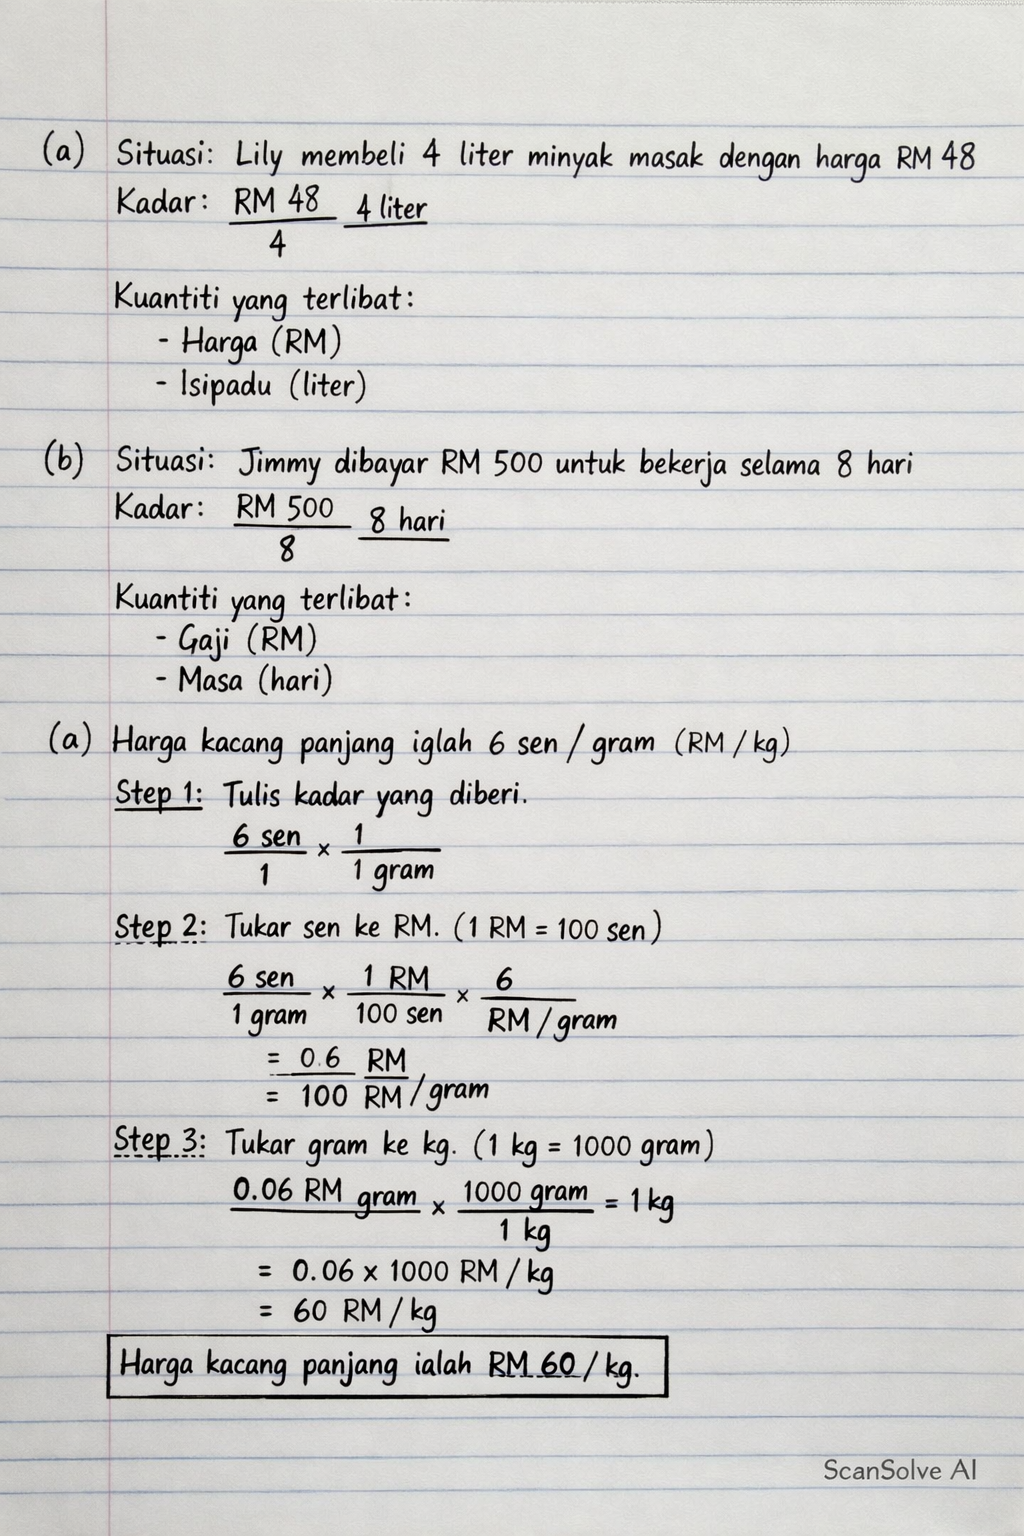 (a) Situasi: Lily membeli 4 liter minyak masak dengan harga RM 48
Kadar: RM 48 4 liter
4
Kuantiti yang terlibat:
- Harga (RM)
- Isipadu (liter)
(b) Situasi: Jimmy dibayar RM 500 untuk bekerja selama 8 hari
Kadar: RM 500 8 hari
8
Kuantiti yang terlibat:
- Gaji (RM)
- Masa (hari)
(a) Harga kacang panjang iglah 6 sen / gram (RM / kg)
Step 1: Tulis kadar yang diberi.
6 sen × 1
1 1 gram
Step 2: Tukar sen ke RM. (1 RM = 100 sen)
6 sen × 1 RM × 6
1 gram 100 sen RM / gram
= 0.6 RM
= 100 RM / gram
Step 3: Tukar gram ke kg. (1 kg = 1000 gram)
0.06 RM gram × 1000 gram = 1 kg
1 kg
= 0.06 × 1000 RM / kg
= 60 RM / kg
Harga kacang panjang ialah RM 60 / kg.
ScanSolve AI